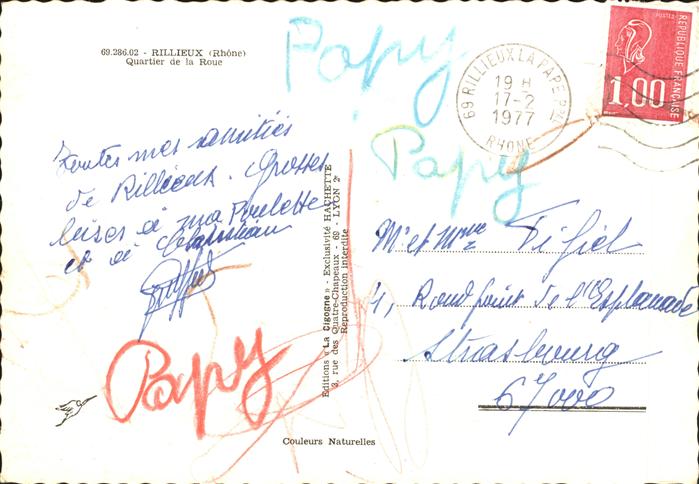 69.286.02 - RILLIEUX (Rhône)
Quartier de la Roue
Papy
69 RILLIEUX LA PAPE PAL
19 H
17-2
1977
RHONE
POSTES
REPUBLIQUE FRANÇAISE
1,00
Papy
Toutes mes amitiés
de Rillieux. Grosses
bises à ma Poulette
et à
Editions « La Cigogne » - Exclusivité HACHETTE
rue des Quatre-Chapeaux - 69 - LYON 2e
Reproduction interdite
Mr et Mme
4, Rond point de l'Esplanade
Strasbourg
67000
Papy
Couleurs Naturelles